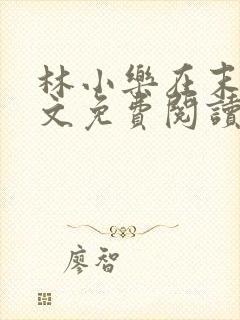 林小樂在末
文免費閱讀
廖智